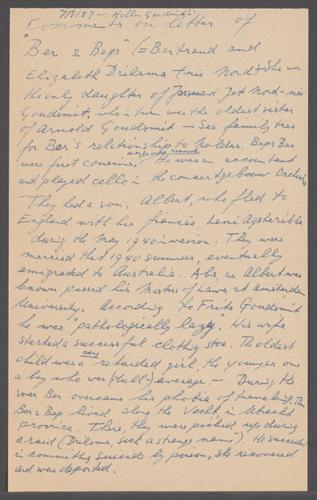 7/3/87 - Hellen Goudsmit's
Comments on letter of
"Ber & Bep" (= Bertrand and
Elizabeth Drilsma (née Nord). She was
the only daughter of Jet Nord-née
Goudsmit, who in turn was the oldest sister
of Arnold Goudsmit - See family tree
for Ber's relationship to Noldas. Bep & Ber
were first cousins. He was an accountant
and played cello in the concertgebouw
They had a son, Albert, who fled to
England with his fiancée, Leni Agsteribbe
during the May 1940 invasion. They were
married that 1940 summer, eventually
emigrated to Australia. Ab, as Albert was
known passed his Masters of Laws at Amsterdam
University. According to Frits Goudsmit
he was "pathologically lazy. His wife
started a successful clothing store. The oldest
child were a very retarded girl, the younger one
a boy who was (dull) average - During the
war Ber overcame his phobia of traveling. The
Ber & Bep lived along the Vecht, in Utrecht
province. There, they were picked up during
a raid (Drilsma, such a strange name). He succeeded
in committing suicide by poison, she recovered
and was deported.